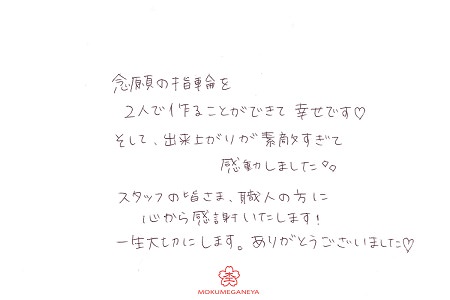 念願の指輪を
2人で作ることができて幸せです♡
そして、出来上がりが素敵すぎて
感動しました。。
スタッフの皆さま、職人の方に
心から感謝いたします!
一生大切にします。ありがとうございました♡
MOKUMEGANEYA